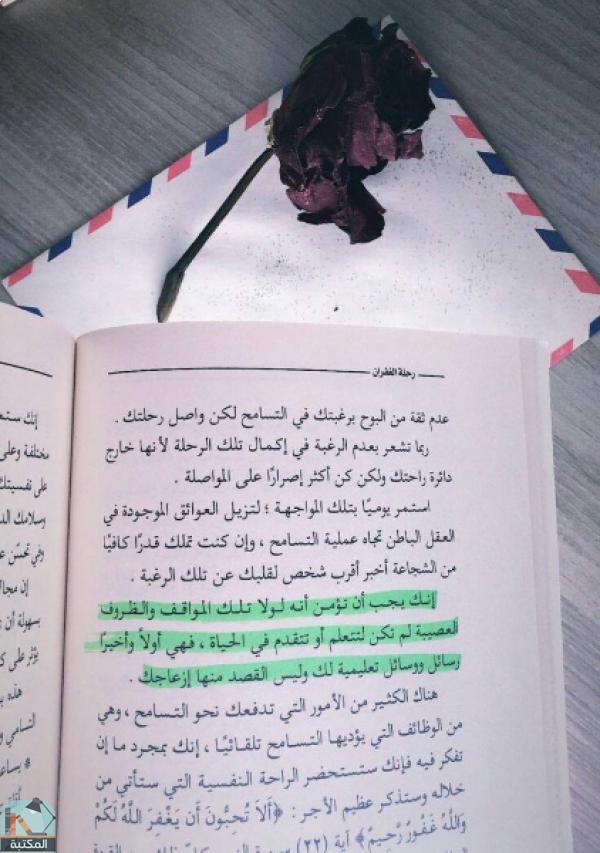 رحلة الغفران
عدم ثقة من البوح برغبتك في التسامح لكن واصل رحلتك .
ربما تشعر بعدم الرغبة في إكمال تلك الرحلة لأنها خارج
دائرة راحتك ولكن كن أكثر إصرارًا على المواصلة .
استمر يوميًا بتلك المواجهة ؛ لتزيل العوائق الموجودة في
العقل الباطن تجاه عملية التسامح ، وإن كنت تملك قدرًا كافيًا
من الشجاعة أخبر أقرب شخص لقلبك عن تلك الرغبة .
إنك يجب أن تؤمن أنه لولا تلك المواقف والظروف
العصيبة لم تكن لتتعلم أو تتقدم في الحياة ، فهي أولاً وأخيرًا
رسائل ووسائل تعليمية لك وليس القصد منها إزعاجك .
هناك الكثير من الأمور التي تدفعك نحو التسامح ، وهي
من الوظائف التي يؤديها التسامح تلقائيًا ، إنك بمجرد ما إن
تفكر فيه فإنك ستستحضر الراحة النفسية التي ستأتي من
خلاله وستذكر عظيم الأجر : ﴿أَلَا تُحِبُّونَ أَن يَغْفِرَ اللَّهُ لَكُمْ
وَاللَّهُ غَفُورٌ رَّحِيمٌ﴾ آية (٢٢)
مختلفة وعلى
على نفسيتك
وسلامك
وفي تحسّن
إن مجال
بسهولة أن
يؤثر على
هذه
التسامي
المكتبة